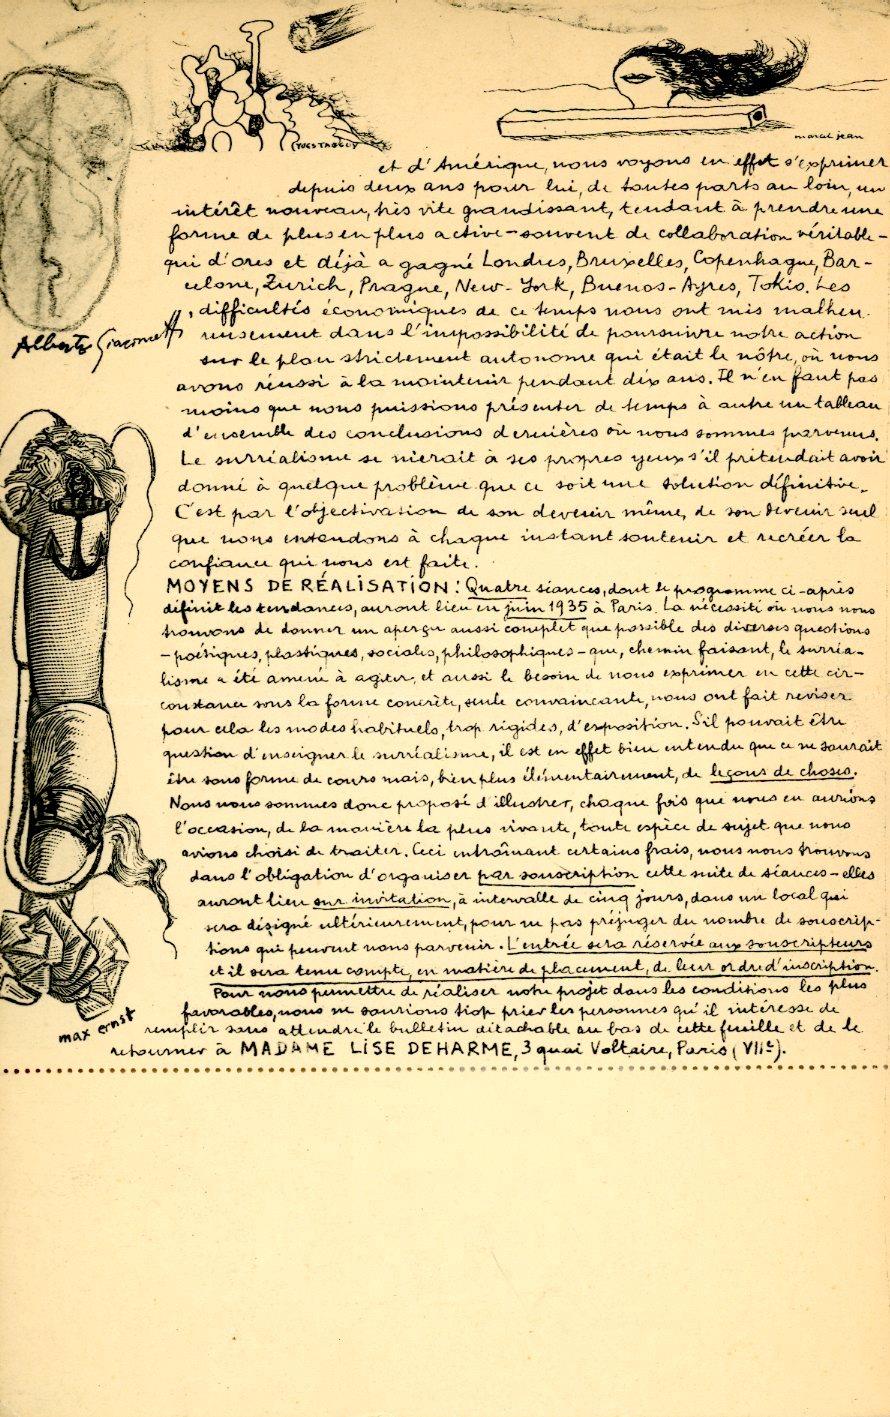 YVES TANGUY
marcel jean
et d'Amérique, nous voyons en effet s'exprimer
depuis deux ans pour lui, de toutes parts au loin, un
intérêt nouveau, très vite grandissant, tendant à prendre une
forme de plus en plus active – souvent de collaboration véritable –
qui d'ores et déjà a gagné Londres, Bruxelles, Copenhague, Bar-
celone, Zurich, Prague, New-York, Buenos-Ayres, Tokio. Les
difficultés économiques de ce temps nous ont mis malheu-
reusement dans l'impossibilité de poursuivre notre action
sur le plan strictement autonome qui était le nôtre, où nous
avons réussi à la maintenir pendant dix ans. Il n'en faut pas
moins que nous puissions présenter de temps à autre un tableau
d'ensemble des conclusions dernières où nous sommes parvenus.
Le surréalisme se nierait à ses propres yeux s'il prétendait avoir
donné à quelque problème que ce soit une solution définitive.
C'est par l'objectivation de son devenir même, de son devenir seul
que nous entendons à chaque instant soutenir et recréer la
confiance qui nous est faite.
MOYENS DE RÉALISATION : Quatre séances, dont le programme ci-après
définit les tendances, auront lieu en juin 1935 à Paris. La nécessité où nous nous
trouvons de donner un aperçu aussi complet que possible des diverses questions
– poétiques, plastiques, sociales, philosophiques – que, chemin faisant, le surréa-
lisme a été amené à agiter, et aussi le besoin de nous exprimer en cette cir-
constance sous la forme concrète, seule convaincante, nous ont fait reviser
pour cela les modes habituels, trop rigides, d'exposition. S'il pouvait être
question d'enseigner le surréalisme, il est en effet bien entendu que ce ne saurait
être sous forme de cours mais, bien plus élémentairement, de leçons de choses.
Nous nous sommes donc proposé d'illustrer, chaque fois que nous en aurions
l'occasion, de la manière la plus vivante, toute espèce de sujet que nous
avions choisi de traiter. Ceci entraînant certains frais, nous nous trouvons
dans l'obligation d'organiser par souscription cette suite de séances – elles
auront lieu sur invitation, à intervalle de cinq jours, dans un local qui
sera désigné ultérieurement, pour ne pas préjuger du nombre de souscrip-
tions qui peuvent nous parvenir. L'entrée sera réservée aux souscripteurs
et il sera tenu compte, en matière de placement, de leur ordre d'inscription.
Pour nous permettre de réaliser notre projet dans les conditions les plus
favorables, nous ne saurions trop prier les personnes qu'il intéresse de
remplir sans attendre le bulletin détachable au bas de cette feuille et de le
retourner à MADAME LISE DEHARME, 3 quai Voltaire, Paris (VIIe).
Alberto Giacometti
max ernst